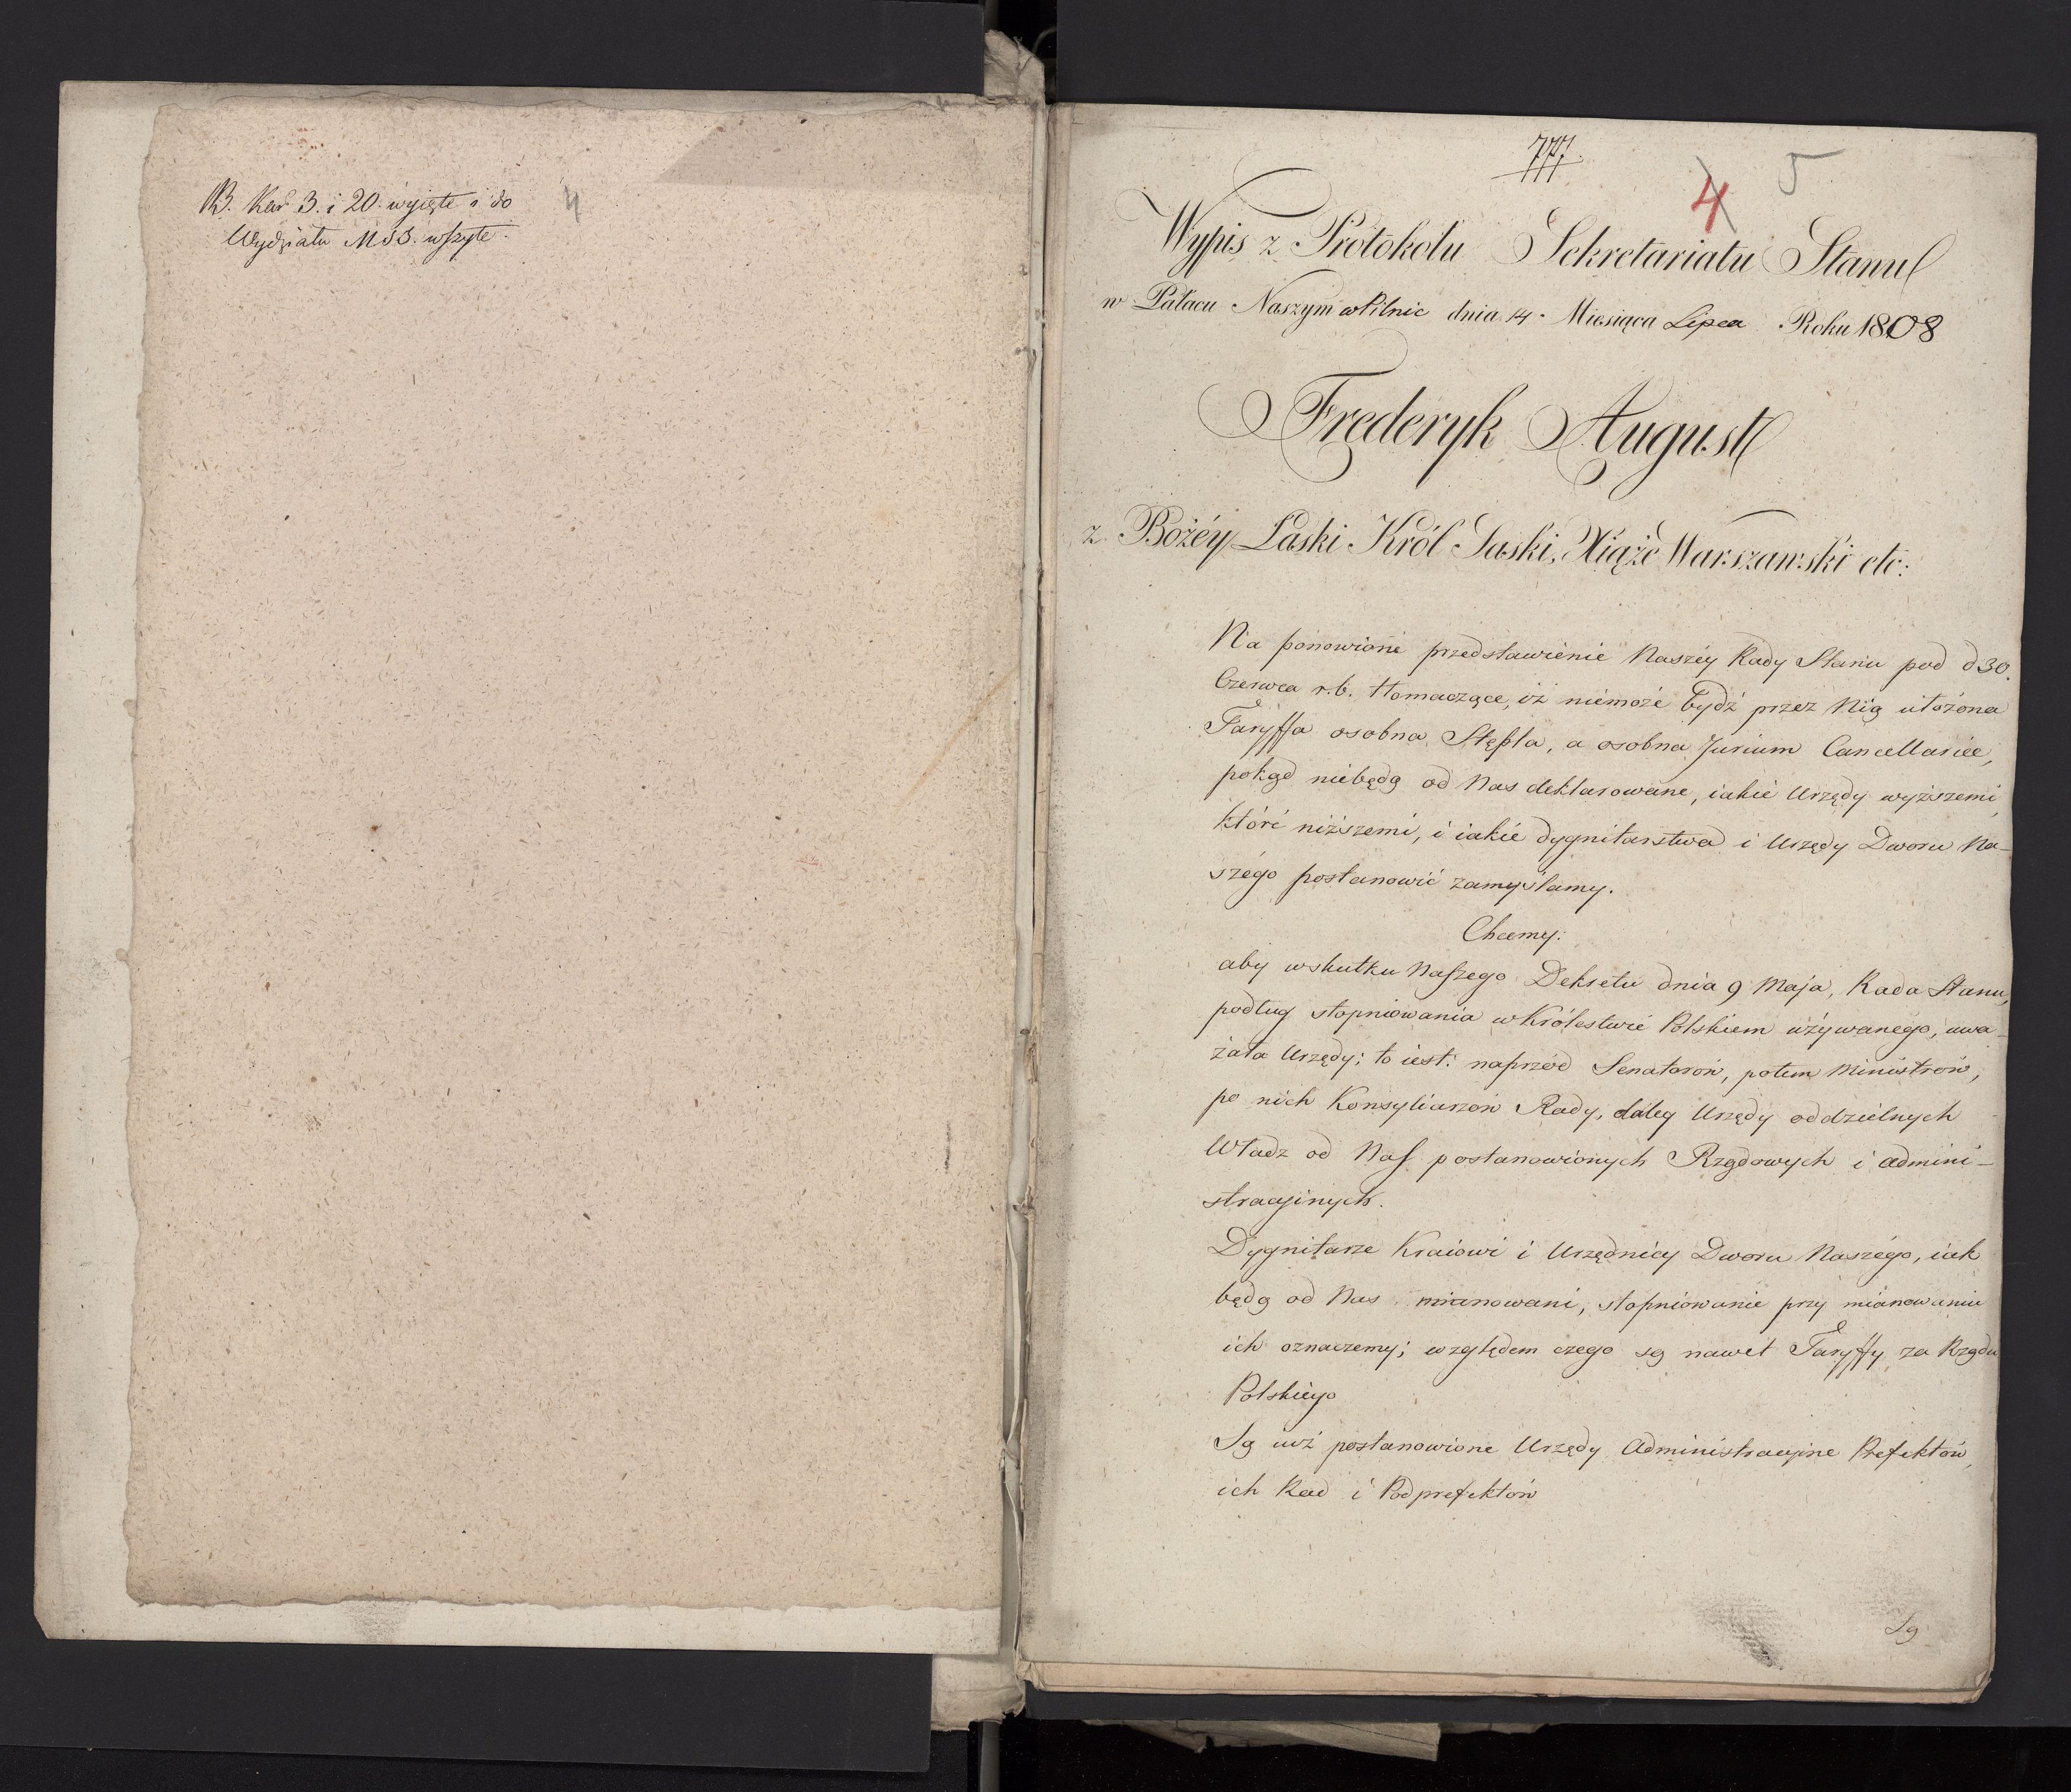 NB. Kar 3. i 20. wyięte i do
Wydziału MS3. wszyte.
4
777.
4 5
Wypis z Protokołu Sekretariatu Stanu
w Pałacu Naszym w Pilnic dnia 14. Miesiąca Lipca Roku 1808
Frederyk August
z Bożéy Łaski Król Saski, Xiąże Warszawski etc:
Na ponowione przedstawienie Naszéy Rady Stanu pod d 30.
Czerwca r.b. tłomaczące, iż niemoże bydź przez Nią ułożona
Taryffa osobna Stępla, a osobna Jurium Cancellariae,
pokąd niebędą od Nas deklarowane, iakie Urzędy wyższemi,
któré niższemi, i iakie dygnitarstwa i Urzędy Dworu Na-
szégo postanowić zamyślamy.
Chcemy:
aby wskutku Naszego Dekretu dnia 9 Maja, Rada Stanu,
podług stopniowania w Królestwie Polskiem używanego, uwa-
żała Urzędy; to iest: naprzód Senatorów, potem Ministrów,
po nich Konsyliarzów Rady, daléy Urzędy oddzielnych
Władz od Nas postanowionych Rządowych i admini-
stracyinych.
Dygnitarze Kraiowi i Urzędnicy Dworu Naszégo, iak
będą od Nas mianowani, stopniowanie przy mianowaniu
ich oznaczemy; względem czego są nawet Taryffy za Rządu
Polskiego
Są iuż postanowione Urzędy Administracyjne Prefektów,
ich Rad i Podprefektów
Są